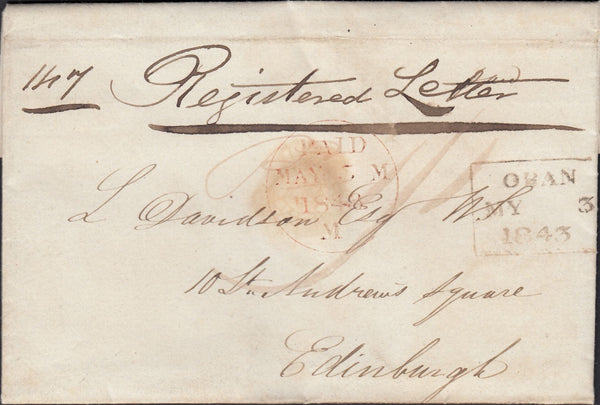 147
Registered Letter
Paid
PAID
MAY M
1843
M
OBAN
MY 3
1843
L Davidson Esq W.S.
10 St. Andrews Square
Edinburgh